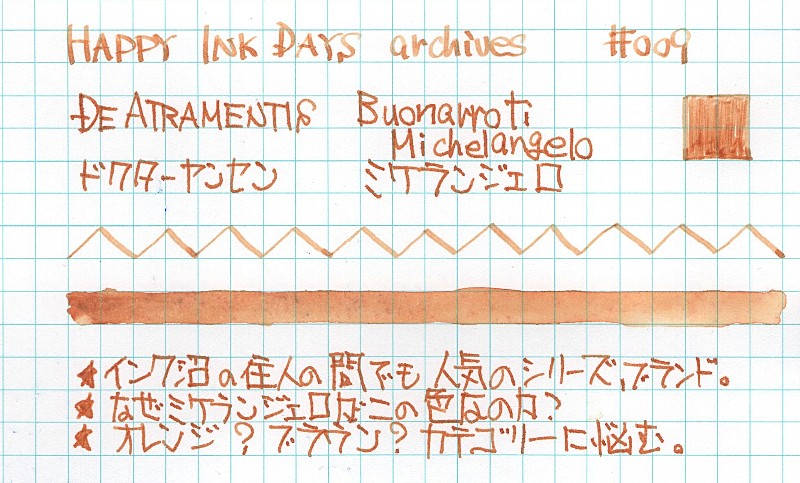 HAPPY INK DAYS archives #009
DE ATRAMENTIS Buonarroti
Michelangelo
ドクターヤンセン ミケランジェロ
★インク沼の住人の間でも人気のシリーズ、ブランド。
★なぜミケランジェロがこの色なのか?
★オレンジ?ブラウン?カテゴリーに悩む。